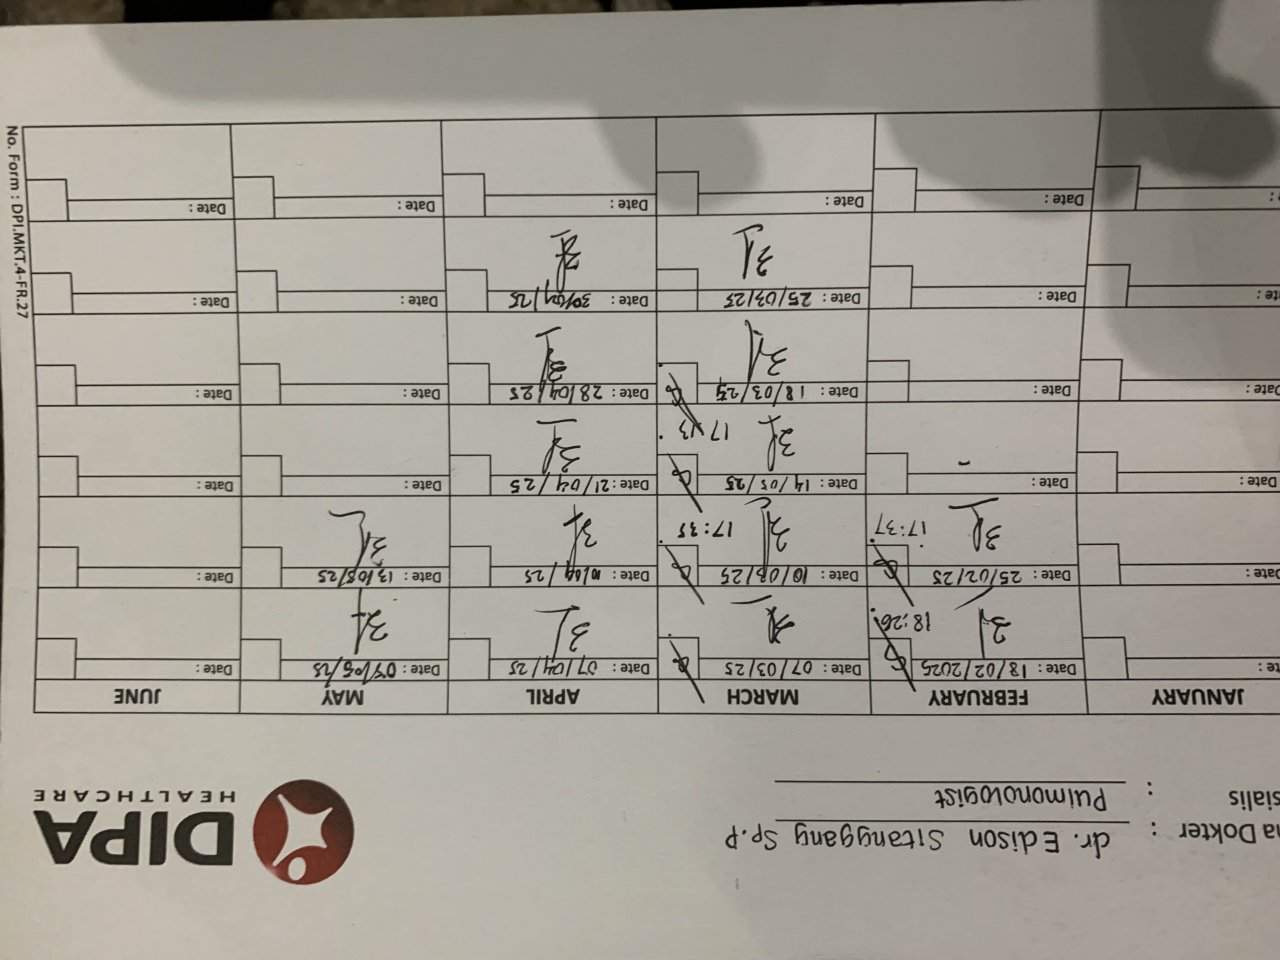 na Dokter : dr. Edison Sitanggang Sp.P
sialis : Pulmonologist
DIPA
HEALTHCARE
JANUARY FEBRUARY MARCH APRIL MAY JUNE
te : Date : 18/02/2025 Date : 07/03/25 Date : 07/04/25 Date : 07/05/25 Date :
18:26
Date : Date : 25/02/25 Date : 10/03/25 Date : 10/04/25 Date : 13/05/25 Date :
17:37 17:35
Date : Date : Date : 14/03/25 Date : 21/04/25 Date : Date :
17 13
Date : Date : Date : 18/03/25 Date : 28/04/25 Date : Date :
te : Date : Date : 25/03/25 Date : 30/04/25 Date : Date :
: Date : Date : Date : Date : Date :
No. Form : DPI.MKT.4-FR.27